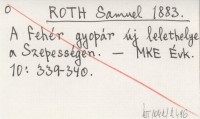 o ROTH Samuel 1883.
A Fehér gyopár új lelethelye
a Szepességen. — MKE Évk.
10: 339-340.